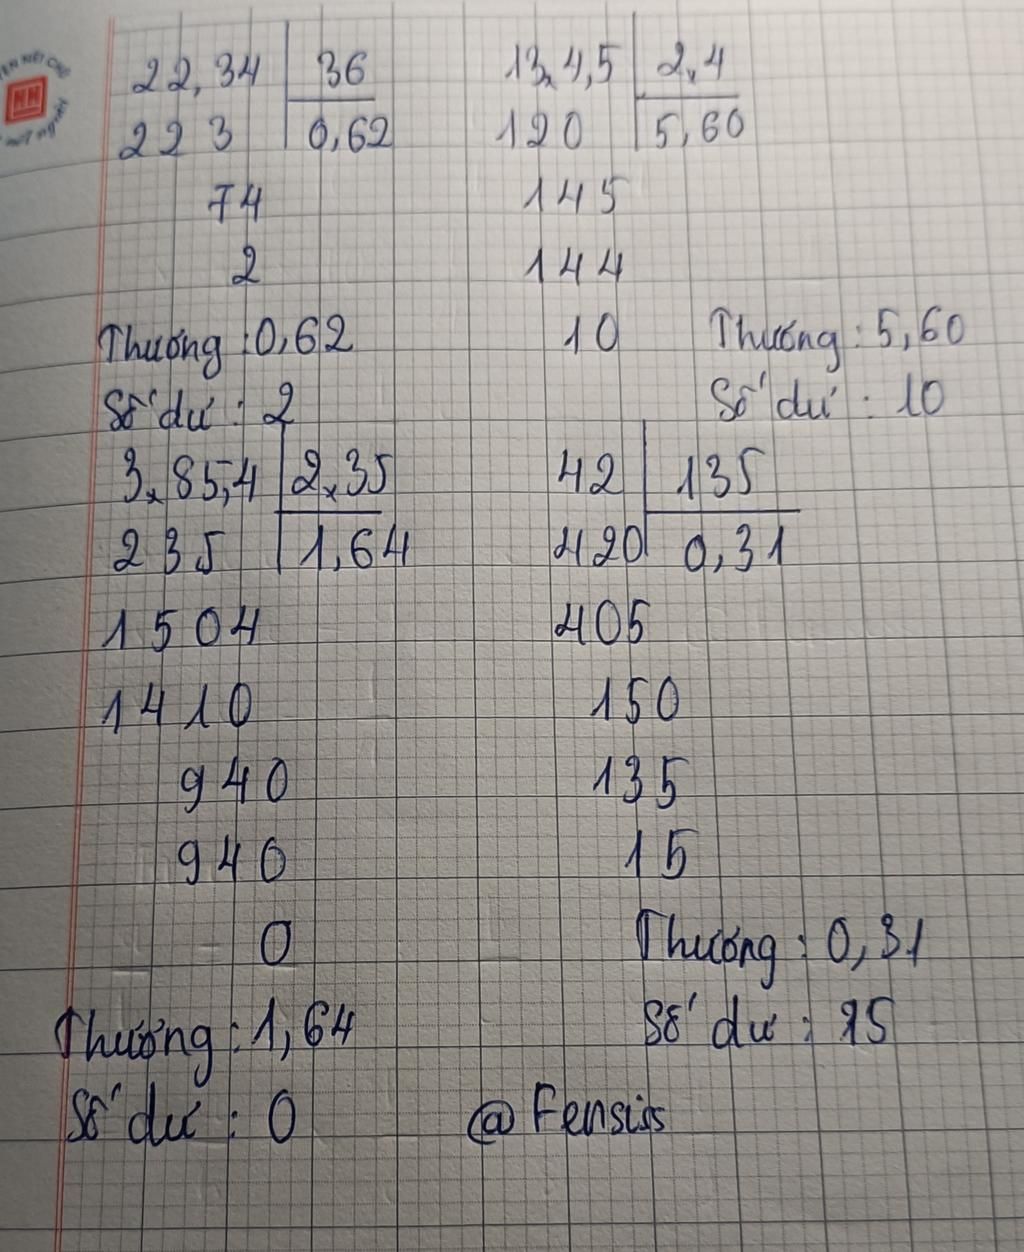 22,34 36
223 0,62
74
2
Thương : 0,62
Số dư : 2
13,4,5 2,4
120 5,60
145
144
10
Thương : 5,60
Số dư : 10
3,85,4 2,35
235 1,64
1504
1410
940
940
0
Thương : 1,64
Số dư : 0
42 135
420 0,31
405
150
135
15
Thương : 0,31
Số dư : 15
@Fensiss